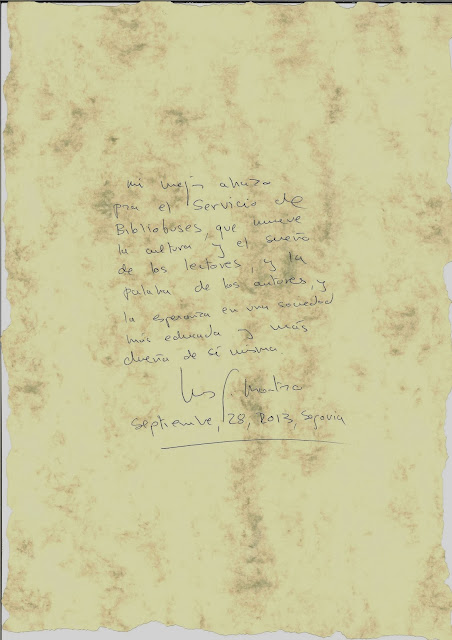 mi mejor abrazo
para el Servicio de
Bibliobuses, que mueve
la cultura y el sueño
de los lectores, y la
palabra de los autores, y
la esperanza en una sociedad
más educada y más
dueña de sí misma
Luis G. Montero
Septiembre, 28, 2013, Segovia